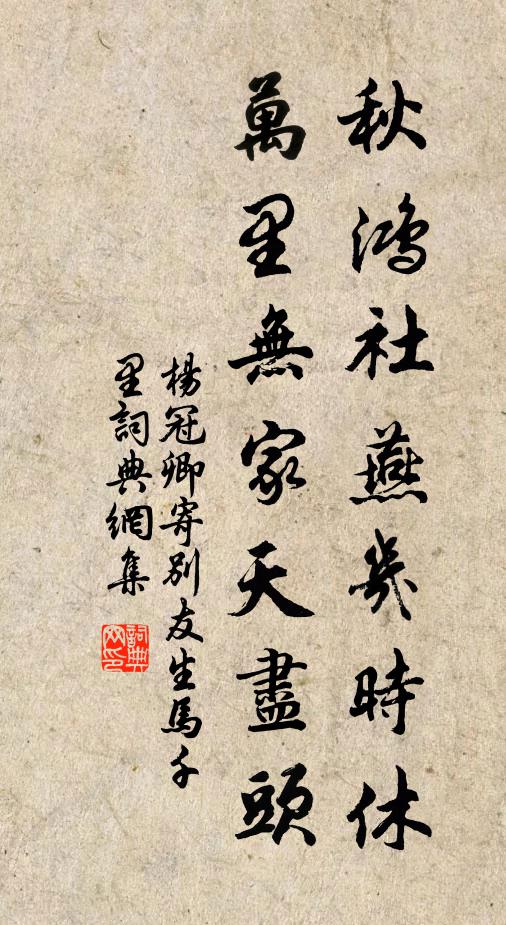 秋鴻社燕幾時休
萬里無家天盡頭
楊冠卿寄別友生馬千
里詞典網集
詞典
网印